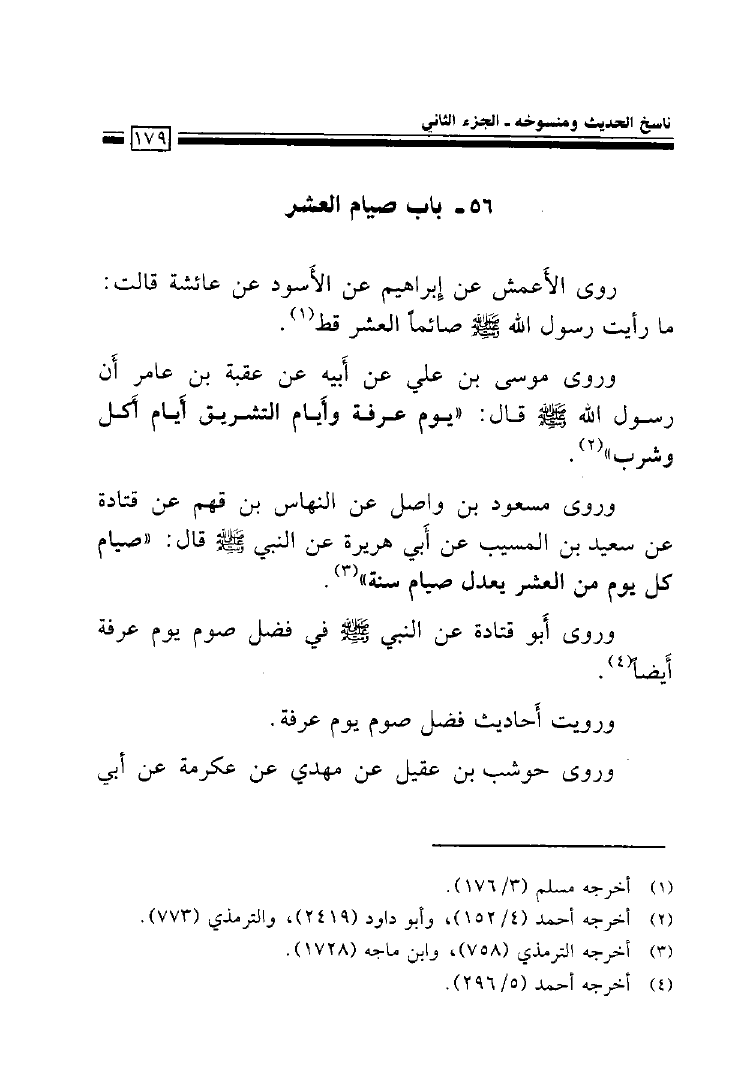 ناسخ الحديث ومنسوخه ـ الجزء الثاني
١٧٩
٥٦ ـ باب صيام العشر
روى الأَعمش عن إبراهيم عن الأَسود عن عائشة قالت:
ما رأيت رسول الله ﷺ صائماً العشر قط(١).
وروى موسى بن علي عن أَبيه عن عقبة بن عامر أَن
رسول الله ﷺ قال: «يوم عرفة وأَيام التشريق أَيام أَكل
وشرب»(٢).
وروى مسعود بن واصل عن النهاس بن قهم عن قتادة
عن سعيد بن المسيب عن أَبي هريرة عن النبي ﷺ قال: «صيام
كل يوم من العشر يعدل صيام سنة»(٣).
وروى أَبو قتادة عن النبي ﷺ في فضل صوم يوم عرفة
أَيضاً(٤).
ورويت أَحاديث فضل صوم يوم عرفة.
وروى حوشب بن عقيل عن مهدي عن عكرمة عن أَبي
(١) أخرجه مسلم (٣/١٧٦).
(٢) أخرجه أحمد (٤/١٥٢)، وأبو داود (٢٤١٩)، والترمذي (٧٧٣).
(٣) أخرجه الترمذي (٧٥٨)، وابن ماجه (١٧٢٨).
(٤) أخرجه أحمد (٥/٢٩٦).